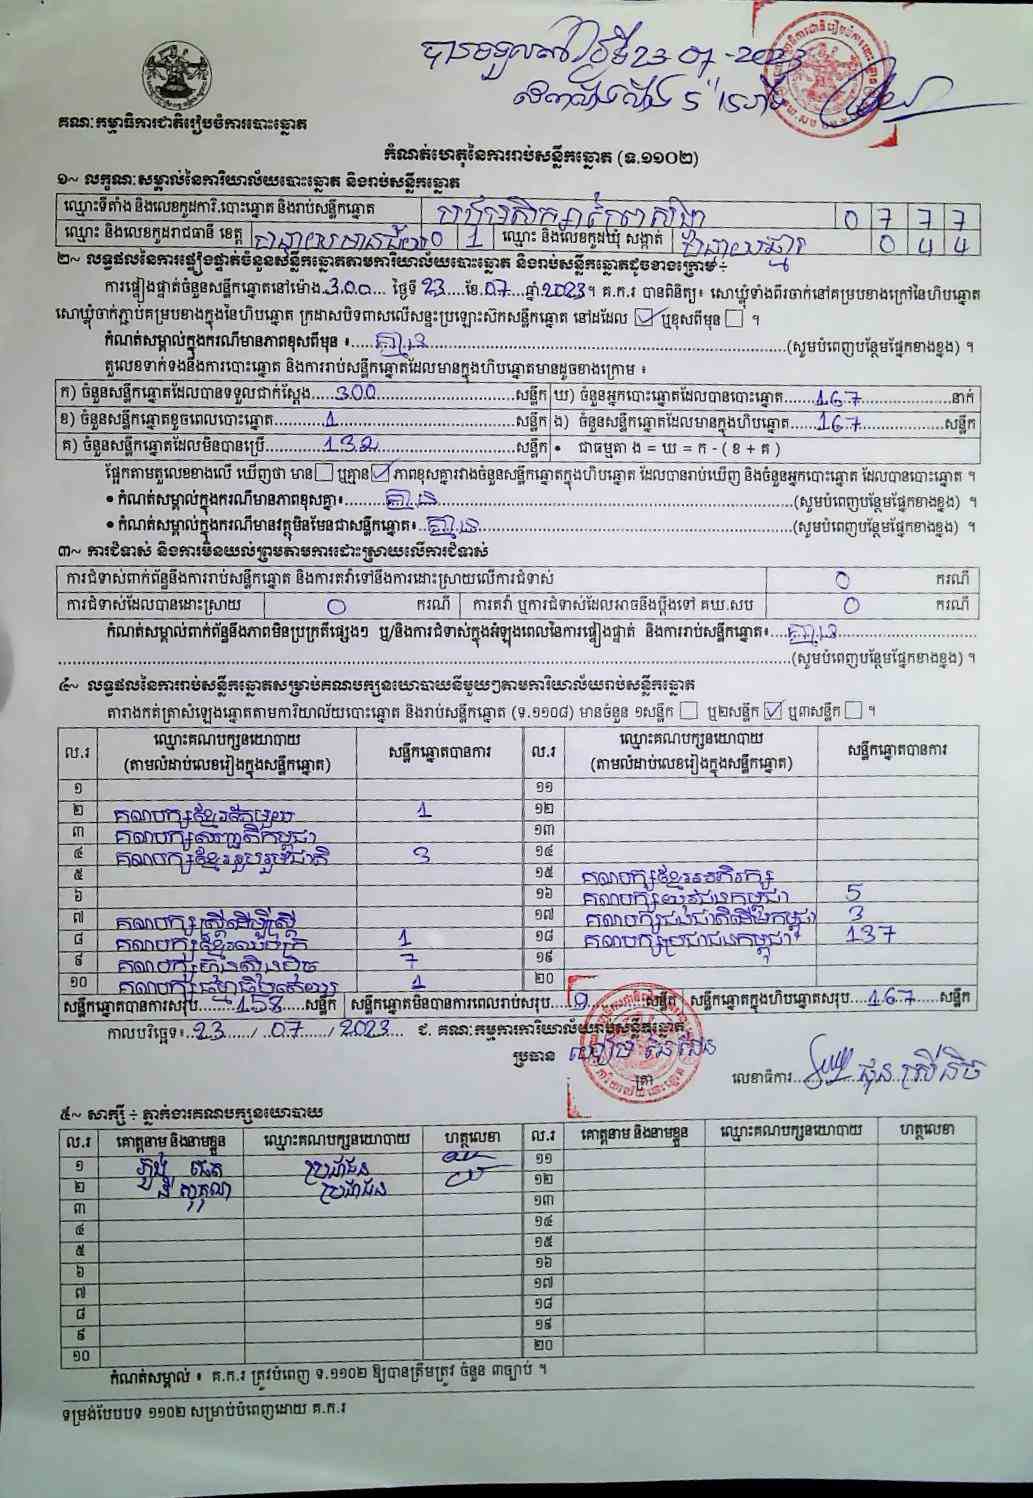 បានទទួលនៅថ្ងៃទី23-07-2023
គណៈកម្មាធិការជាតិរៀបចំការបោះឆ្នោត
កំណត់ហេតុនៃការរាប់សន្លឹកឆ្នោត (ទ.១១០២)
១~ លក្ខណៈសម្គាល់នៃការិយាល័យបោះឆ្នោត និងរាប់សន្លឹកឆ្នោត
ឈ្មោះទីតាំង និងលេខកូដការិ.បោះឆ្នោត និងរាប់សន្លឹកឆ្នោត 0 7 7 7
ឈ្មោះ និងលេខកូដរាជធានី ខេត្ត បន្ទាយមានជ័យ 0 1 ឈ្មោះ និងលេខកូដឃុំ សង្កាត់ បន្ទាយឆ្មារ 0 4 4
២~ លទ្ធផលនៃការផ្ទៀងផ្ទាត់ចំនួនសន្លឹកឆ្នោតតាមការិយាល័យបោះឆ្នោត និងរាប់សន្លឹកឆ្នោតដូចខាងក្រោម ÷
ការផ្ទៀងផ្ទាត់ចំនួនសន្លឹកឆ្នោតនៅម៉ោង.3.00.... ថ្ងៃទី 23....ខែ.07....ឆ្នាំ.2023។ គ.ក.រ បានពិនិត្យ៖ សោឃ្លុំទាំងពីរចាក់នៅគម្របខាងក្រៅនៃហិបឆ្នោត
សោឃ្លុំចាក់ភ្ជាប់គម្របខាងក្នុងនៃហិបឆ្នោត ក្រដាសបិទពាសលើសន្ទះប្រឡោះសិកសន្លឹកឆ្នោត នៅដដែល ☑ ឬខុសពីមុន ☐ ។
កំណត់សម្គាល់ក្នុងករណីមានភាពខុសពីមុន ៖.....គ្មាន.....(សូមបំពេញបន្ថែមផ្នែកខាងខ្នង) ។
តួលេខទាក់ទងនឹងការបោះឆ្នោត និងការរាប់សន្លឹកឆ្នោតដែលមានក្នុងហិបឆ្នោតមានដូចខាងក្រោម ៖
ក) ចំនួនសន្លឹកឆ្នោតដែលបានទទួលជាក់ស្តែង.....300.....សន្លឹក ឃ) ចំនួនអ្នកបោះឆ្នោតដែលបានបោះឆ្នោត.....167.....នាក់
ខ) ចំនួនសន្លឹកឆ្នោតខូចពេលបោះឆ្នោត.....1.....សន្លឹក ង) ចំនួនសន្លឹកឆ្នោតដែលមានក្នុងហិបឆ្នោត.....167.....សន្លឹក
គ) ចំនួនសន្លឹកឆ្នោតដែលមិនបានប្រើ.....132.....សន្លឹក • ជាធម្មតា ង = ឃ = ក - ( ខ + គ )
ផ្អែកតាមតួលេខខាងលើ ឃើញថា មាន ☐ ឬគ្មាន ☑ ភាពខុសគ្នារវាងចំនួនសន្លឹកឆ្នោតក្នុងហិបឆ្នោត ដែលបានរាប់ឃើញ និងចំនួនអ្នកបោះឆ្នោត ដែលបានបោះឆ្នោត ។
• កំណត់សម្គាល់ក្នុងករណីមានភាពខុសគ្នា៖.....គ្មាន.....(សូមបំពេញបន្ថែមផ្នែកខាងខ្នង) ។
• កំណត់សម្គាល់ក្នុងករណីមានវត្ថុមិនមែនជាសន្លឹកឆ្នោត៖..គ្មាន.....(សូមបំពេញបន្ថែមផ្នែកខាងខ្នង) ។
៣~ ការជំទាស់ និងការមិនយល់ព្រមតាមការដោះស្រាយលើការជំទាស់
ការជំទាស់ពាក់ព័ន្ធនឹងការរាប់សន្លឹកឆ្នោត និងការតវ៉ាទៅនឹងការដោះស្រាយលើការជំទាស់ 0 ករណី
ការជំទាស់ដែលបានដោះស្រាយ 0 ករណី ការតវ៉ា ឬការជំទាស់ដែលអាចនឹងប្តឹងទៅ គឃ.សប 0 ករណី
កំណត់សម្គាល់ពាក់ព័ន្ធនឹងភាពមិនប្រក្រតីផ្សេងៗ ឬ/និងការជំទាស់ក្នុងអំឡុងពេលនៃការផ្ទៀងផ្ទាត់ និងការរាប់សន្លឹកឆ្នោត៖....គ្មាន.....
.....(សូមបំពេញបន្ថែមផ្នែកខាងខ្នង) ។
៤~ លទ្ធផលនៃការរាប់សន្លឹកឆ្នោតសម្រាប់គណបក្សនយោបាយនីមួយៗតាមការិយាល័យរាប់សន្លឹកឆ្នោត
តារាងកត់ត្រាសំឡេងឆ្នោតតាមការិយាល័យបោះឆ្នោត និងរាប់សន្លឹកឆ្នោត (ទ.១១០៨) មានចំនួន ១សន្លឹក ☐ ឬ២សន្លឹក ☑ ឬ៣សន្លឹក ☐ ។
ល.រ ឈ្មោះគណបក្សនយោបាយ (តាមលំដាប់លេខរៀងក្នុងសន្លឹកឆ្នោត) សន្លឹកឆ្នោតបានការ ល.រ ឈ្មោះគណបក្សនយោបាយ (តាមលំដាប់លេខរៀងក្នុងសន្លឹកឆ្នោត) សន្លឹកឆ្នោតបានការ
១ ១១
២ គណបក្សខ្មែរតែមួយ 1 ១២
៣ គណបក្សសញ្ជាតិកម្ពុជា ១៣
៤ គណបក្សខ្មែររួបរួមជាតិ 3 ១៤
៥ ១៥ គណបក្សខ្មែរអភិរក្ស
៦ ១៦ គណបក្សយុវជនកម្ពុជា 5
៧ គណបក្សស្ត្រីដើម្បីស្ត្រី ១៧ គណបក្សជនជាតិដើមកម្ពុជា 3
៨ គណបក្សខ្មែរឈប់ក្រ 1 ១៨ គណបក្សប្រជាជនកម្ពុជា 137
៩ គណបក្សហ៊្វុនស៊ិនប៉ិច 7 ១៩
១០ គណបក្សធម្មាធិបតេយ្យ 1 ២០
សន្លឹកឆ្នោតបានការសរុប.....158.....សន្លឹក សន្លឹកឆ្នោតមិនបានការពេលរាប់សរុប.....9.....សន្លឹក សន្លឹកឆ្នោតក្នុងហិបឆ្នោតសរុប....167.....សន្លឹក
កាលបរិច្ឆេទ៖..23...../ ..07....../ 2023.... ជ. គណៈកម្មការការិយាល័យរាប់សន្លឹកឆ្នោត
ប្រធាន
ត្រា លេខាធិការ.....ផុន ស្រីនិច
៥~ សាក្សី ÷ ភ្នាក់ងារគណបក្សនយោបាយ
ល.រ គោត្តនាម និងនាមខ្លួន ឈ្មោះគណបក្សនយោបាយ ហត្ថលេខា ល.រ គោត្តនាម និងនាមខ្លួន ឈ្មោះគណបក្សនយោបាយ ហត្ថលេខា
១ ប្រជាជន ១១
២ ប្រជាជន ១២
៣ ១៣
៤ ១៤
៥ ១៥
៦ ១៦
៧ ១៧
៨ ១៨
៩ ១៩
១០ ២០
កំណត់សម្គាល់ ៖ គ.ក.រ ត្រូវបំពេញ ទ.១១០២ ឱ្យបានត្រឹមត្រូវ ចំនួន ៣ច្បាប់ ។
ទម្រង់បែបបទ ១១០២ សម្រាប់បំពេញដោយ គ.ក.រ